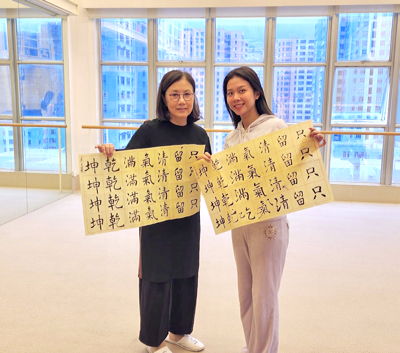 只留清氣滿乾坤
只留清氣滿乾坤
只留清氣滿乾坤
只留清氣滿乾坤
只留清氣滿
只留清氣滿乾坤
只留清氣滿乾坤
只留清氣乾坤